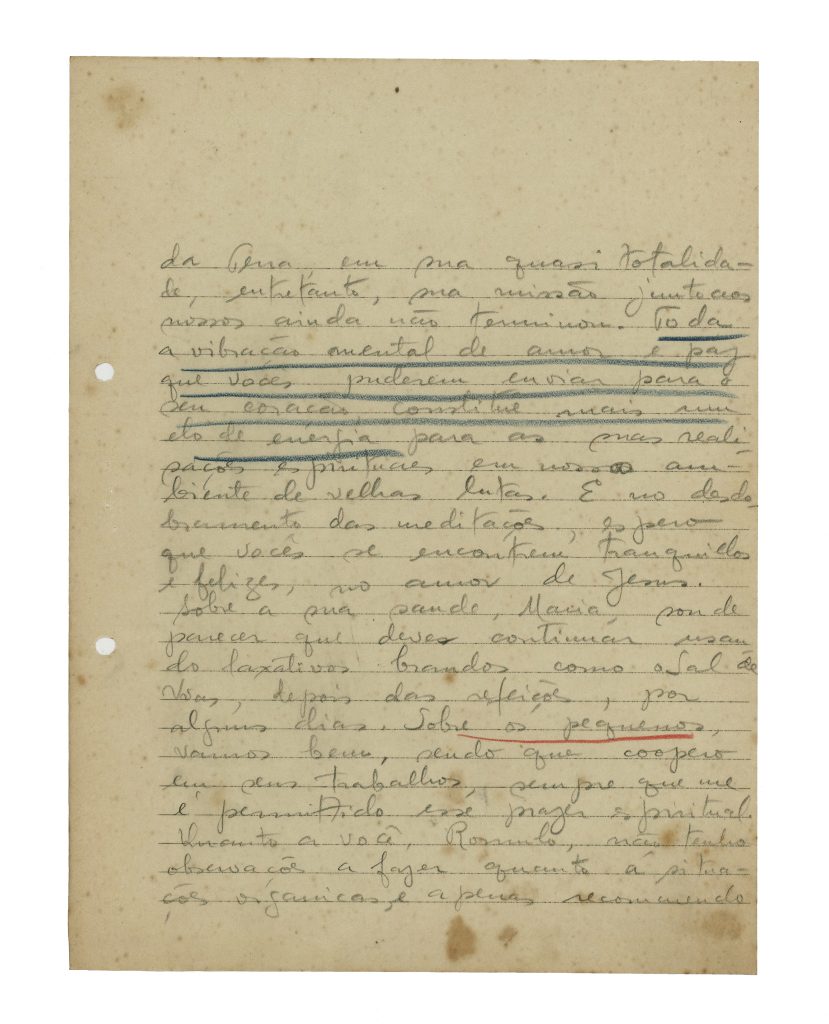 da Terra, em sua quasi totalida-
de, entretanto, sua missão junto aos
nossos ainda não terminou. Toda
a vibração mental de amor e paz
que vocês puderem enviar para o
seu coração constitue mais um
elo de energia para as suas reali
sações espirituaes em nosso am-
biente de velhas lutas. E no desdo-
bramento das meditações, espero
que vocês se encontrem tranquillos
e felizes, no amor de Jesus.
Sobre a sua saude, Maria, sou de
parecer que deves continuar usan
do laxativos brandos como o Sal de
Uvas, depois das refeições, por
alguns dias. Sobre os pequenos,
vamos bem, sendo que coopero
em seus trabalhos, sempre que me
é permittido esse prazer espiritual.
Quanto a você, Romulo, não tenho
observações a fazer quanto á situa-
ções organicas, e apenas recommendo